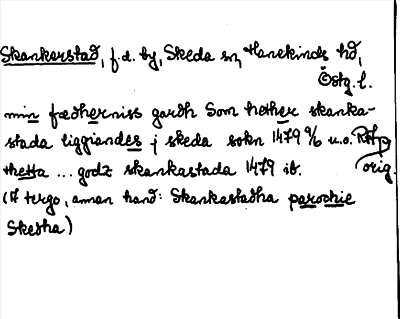 Skankerstad, f.d. by, Skeda sn, Hanekinds hd,
Östg. l.
min fædherniss gardh Som hether skanka-
stada liggiandes j skeda sokn 1479 9/6 u.o. RAp
thetta ... godz skankastada 1479 ib. orig.
(A tergo, annan hand: Skankastadha parochie
Skedha)